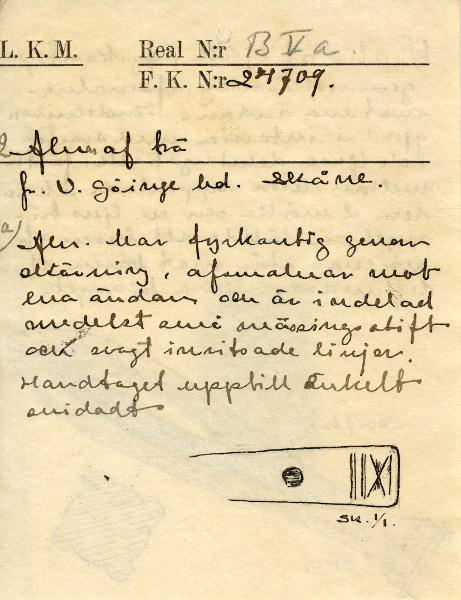 L. K. M. Real N:r B V a.
F. K. N:r 24709.
2 Alnar af trä
fr. V. Göinge hd. Skåne.
a) Aln. har fyrkantig genom
skärning, afsmalnar mot
ena ändan och är indelad
medelst små mässingsstift
och svagt inritsade linjer.
Handtaget upptill enkelt
snidadt
Sk. 1/1.